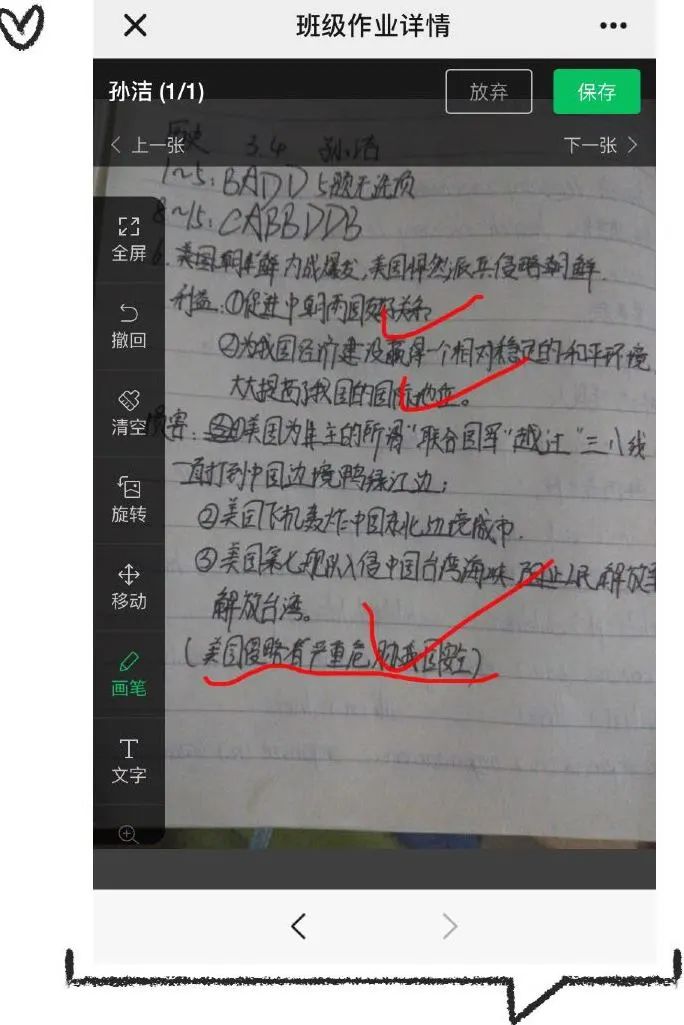 班级作业详情
孙洁 (1/1)
放弃
保存
上一张
下一张
历史 3.4 孙洁
1~5: BADD 5题无选项
8~15: CABBDDB
全屏
撤回
清空
旋转
移动
画笔
文字
6. 美国朝鲜内战爆发,美国悍然派兵侵略朝鲜.
利益:①促进中朝两国友好关系
②为我国经济建设赢得一个相对稳定的和平环境,
大大提高了我国的国际地位。
损害:①美国为集主的所谓“联合国军”越过“三八线
一直打到中国边境鸭绿江边;
②美国飞机轰炸中国东北边境城市.
③美国第七舰队入侵中国台湾海峡 阻止人民解放军
解放台湾。
(美国侵略者严重危胁我国安全)